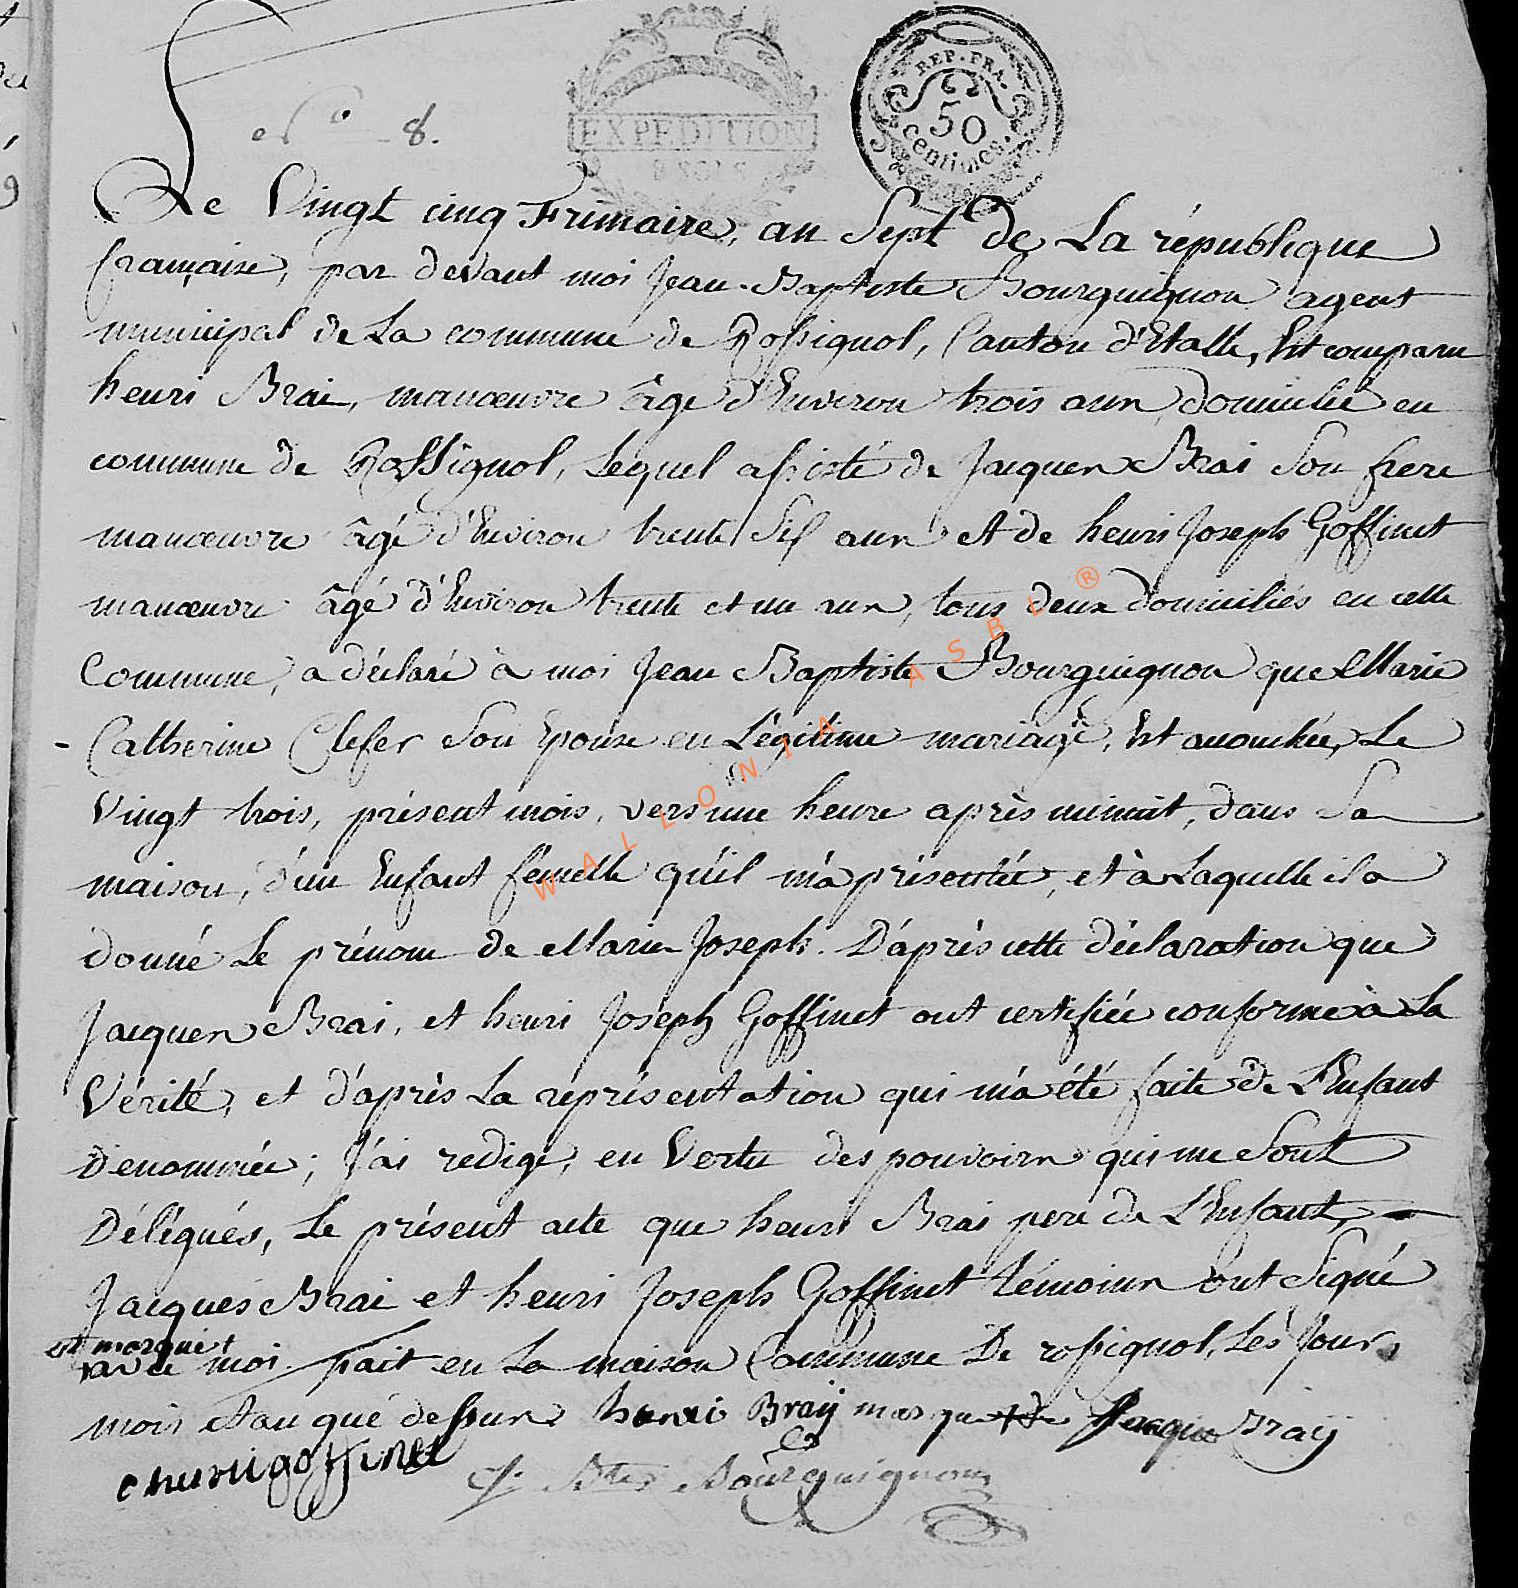 EXPEDITION
REP. FRA.
50
centimes.
N° 8.
Le Vingt cinq Frimaire, an Sept de La république
française, par devant moi Jean-Baptiste Bourguignon agent
municipal de La commune de Rossignol, Canton d'Etalle, Est comparu
henri Brai, manœuvre âge d'Environ trois ans domicilié en
commune de Rossignol, Lequel assisté de Jacques Brai Son frere
manœuvre âgé d'Environ trente Six ans et de henri Joseph Goffinet
manœuvre âgé d'Environ trente et un ans, tous deux domiciliés en cette
Commune, a déclaré à moi Jean Baptiste Bourguignon que Marie
Catherine Clefer Son Epouse en Légitime mariage, Est accouchée, Le
Vingt trois, présent mois, vers une heure après minuit, dans Sa
maison, d'un Enfant femelle qu'il m'a présentée, et à Laquelle il a
donné Le prénom de Marie Joseph. D'après cette déclaration que
Jacques Brai, et henri Joseph Goffinet ont certifiée conforme à La
Vérité, et d'après La représentation qui m'a été faite de L'Enfant
Denommée; J'ai redigé, en Vertu des pouvoirs qui me Sont
Délégués, Le présent acte que henri Brai pere de L'Enfant,
Jacques Brai et henri Joseph Goffinet témoins ont Signé
et marque
avec moi. fait en La maison Commune De rossignol, Les Jour,
mois et an que dessus henri Bray marque Jacque Bray
henri goffinet J. Bte Bourguignon
WALLONIA ASBL ®